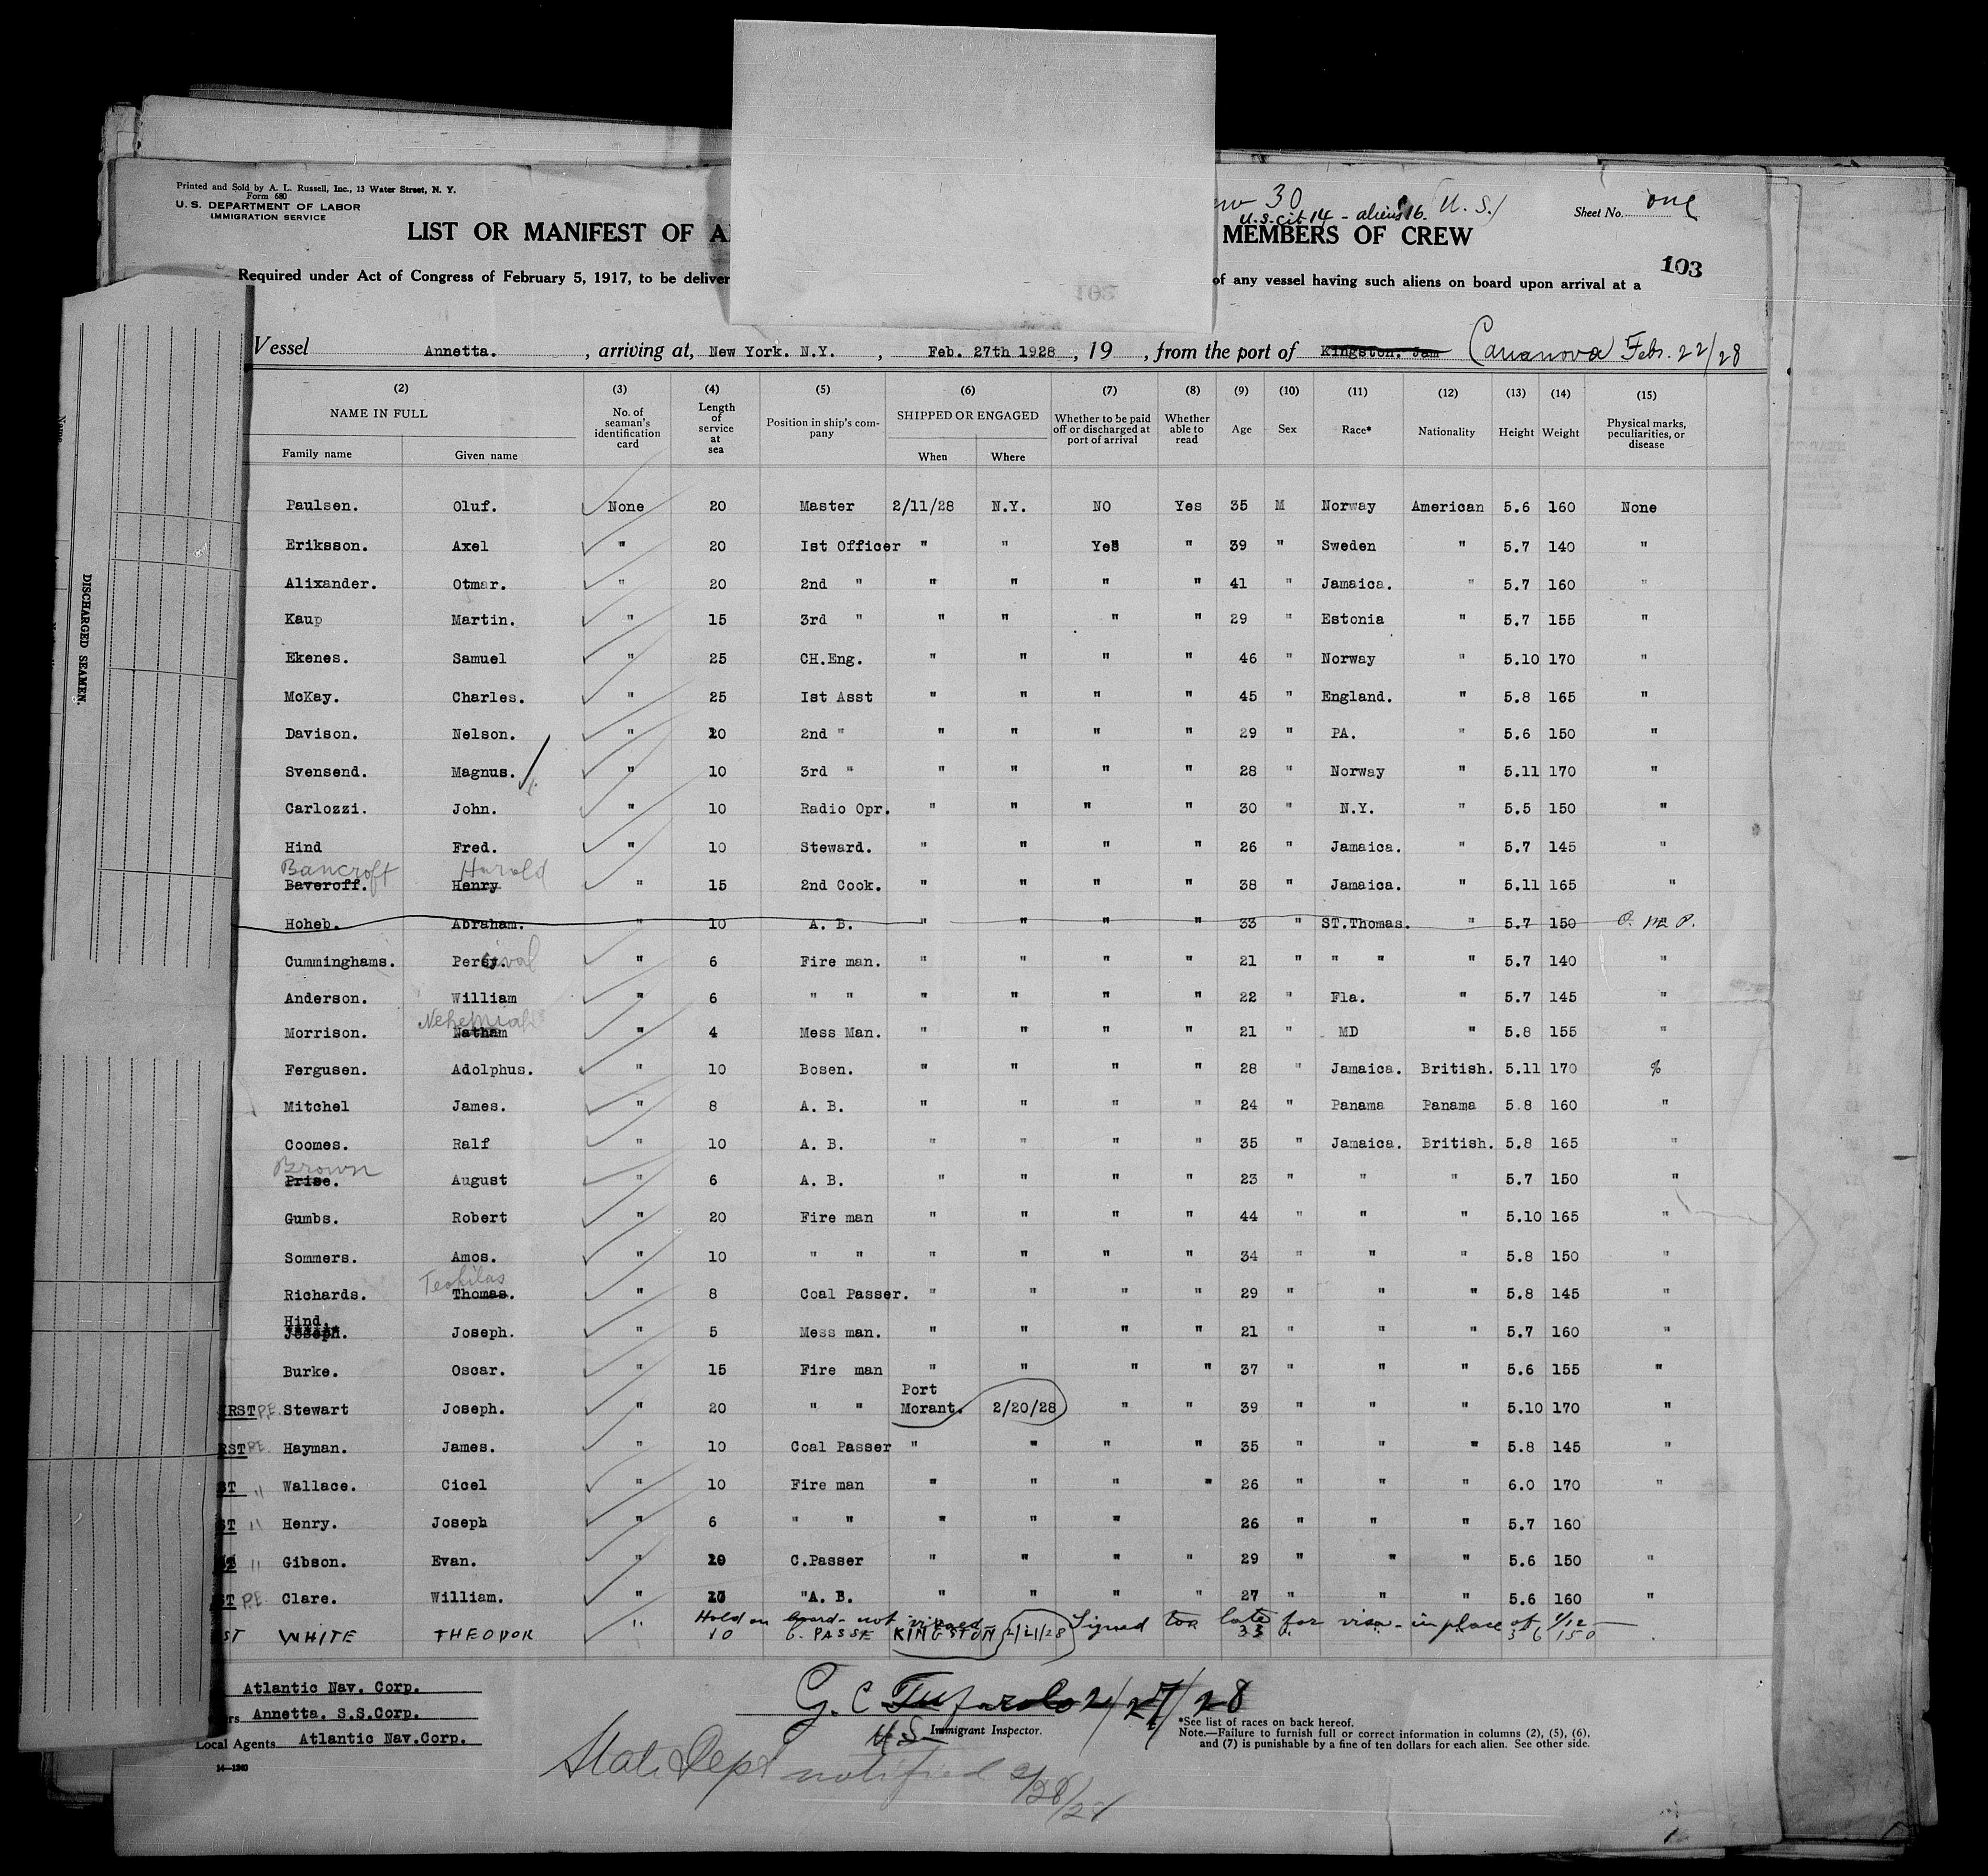 Printed and Sold by A. L. Russell, Inc., 13 Water Street, N. Y.
Form 680
U. S. DEPARTMENT OF LABOR
IMMIGRATION SERVICE
30
U.S. cit 14 - aliens 16. (U. S.)
Sheet No. one
LIST OR MANIFEST OF MEMBERS OF CREW
103
Required under Act of Congress of February 5, 1917, to be of any vessel having such aliens on board upon arrival at a
Vessel Annetta. , arriving at, New York. N.Y. , Feb. 27th 1928 , 19 , from the port of Kingston. Jam Cananova Feb. 22/28
(2) (3) (4) (5) (6) (7) (8) (9) (10) (11) (12) (13) (14) (15)
NAME IN FULL No. of seaman's identification card Length of service at sea Position in ship's company SHIPPED OR ENGAGED Whether to be paid off or discharged at port of arrival Whether able to read Age Sex Race* Nationality Height Weight Physical marks, peculiarities, or disease
Family name Given name When Where
Paulsen. Oluf. None 20 Master 2/11/28 N.Y. NO Yes 35 M Norway American 5.6 160 None
Eriksson. Axel " 20 Ist Officer " " Yes " 39 " Sweden " 5.7 140 "
Alixander. Otmar. " 20 2nd " " " " " 41 " Jamaica. " 5.7 160 "
Kaup Martin. " 15 3rd " " " " " 29 " Estonia " 5.7 155 "
Ekenes. Samuel " 25 CH.Eng. " " " " 46 " Norway " 5.10 170 "
McKay. Charles. " 25 Ist Asst " " " " 45 " England. " 5.8 165 "
Davison. Nelson. " 20 2nd " " " " " 29 " PA. " 5.6 150 "
Svensend. Magnus. " 10 3rd " " " " " 28 " Norway " 5.11 170 "
Carlozzi. John. " 10 Radio Opr. " " " " 30 " N.Y. " 5.5 150 "
Hind Fred. " 10 Steward. " " " " 26 " Jamaica. " 5.7 145 "
Bancroft Harold
Baveroff. Henry " 15 2nd Cook. " " " " 38 " Jamaica. " 5.11 165 "
Hoheb. Abraham. " 10 A. B. " " " " 33 " ST.Thomas. " 5.7 150
Cumminghams. Percival " 6 Fire man. " " " " 21 " " " " 5.7 140 "
Anderson. William " 6 " " " " " " 22 " Fla. " 5.7 145 "
Nehemiah
Morrison. Natham " 4 Mess Man. " " " " 21 " MD " 5.8 155 "
Fergusen. Adolphus. " 10 Bosen. " " " " 28 " Jamaica. British. 5.11 170 %
Mitchel James. " 8 A. B. " " " " 24 " Panama Panama 5.8 160 "
Coomes. Ralf " 10 A. B. " " " " 35 " Jamaica. British. 5.8 165 "
Brown
Prise. August " 6 A. B. " " " " 23 " " " 5.7 150 "
Gumbs. Robert " 20 Fire man " " " " 44 " " " 5.10 165 "
Sommers. Amos. " 10 " " " " " " 34 " " " 5.8 150 "
Teofilas
Richards. Thomas. " 8 Coal Passer. " " " " 29 " " " 5.8 145 "
Hind.
Joseph. Joseph. " 5 Mess man. " " " " 21 " " " 5.7 160 "
Burke. Oscar. " 15 Fire man " " " " 37 " " " 5.6 155 "
Port
RST P.E. Stewart Joseph. " 20 " " Morant. 2/20/28 " " 39 " " " 5.10 170 "
RST P.E. Hayman. James. " 10 Coal Passer " " " " 35 " " " 5.8 145 "
ST " Wallace. Cicel " 10 Fire man " " " " 26 " " " 6.0 170 "
ST " Henry. Joseph " 6 " " " " " 26 " " " 5.7 160
" Gibson. Evan. " C.Passer " " " " 29 " " " 5.6 150 "
ST P.E. Clare. William. " "A. B. " " " " 27 " " " 5.6 160 "
Hold on board - not visaed Signed too late for visa - in place of 1/12
ST WHITE THEODOR " 10 C. PASSE KINGSTON 2/21/28 33 " 150
Atlantic Nav. Corp.
rs Annetta. S.S.Corp.
Local Agents Atlantic Nav.Corp.
14-1240
G. C. 2/27/28
U.S. Immigrant Inspector.
*See list of races on back hereof.
Note.—Failure to furnish full or correct information in columns (2), (5), (6).
and (7) is punishable by a fine of ten dollars for each alien. See other side.
State Dept notified 2/28/28
DISCHARGED SEAMEN.